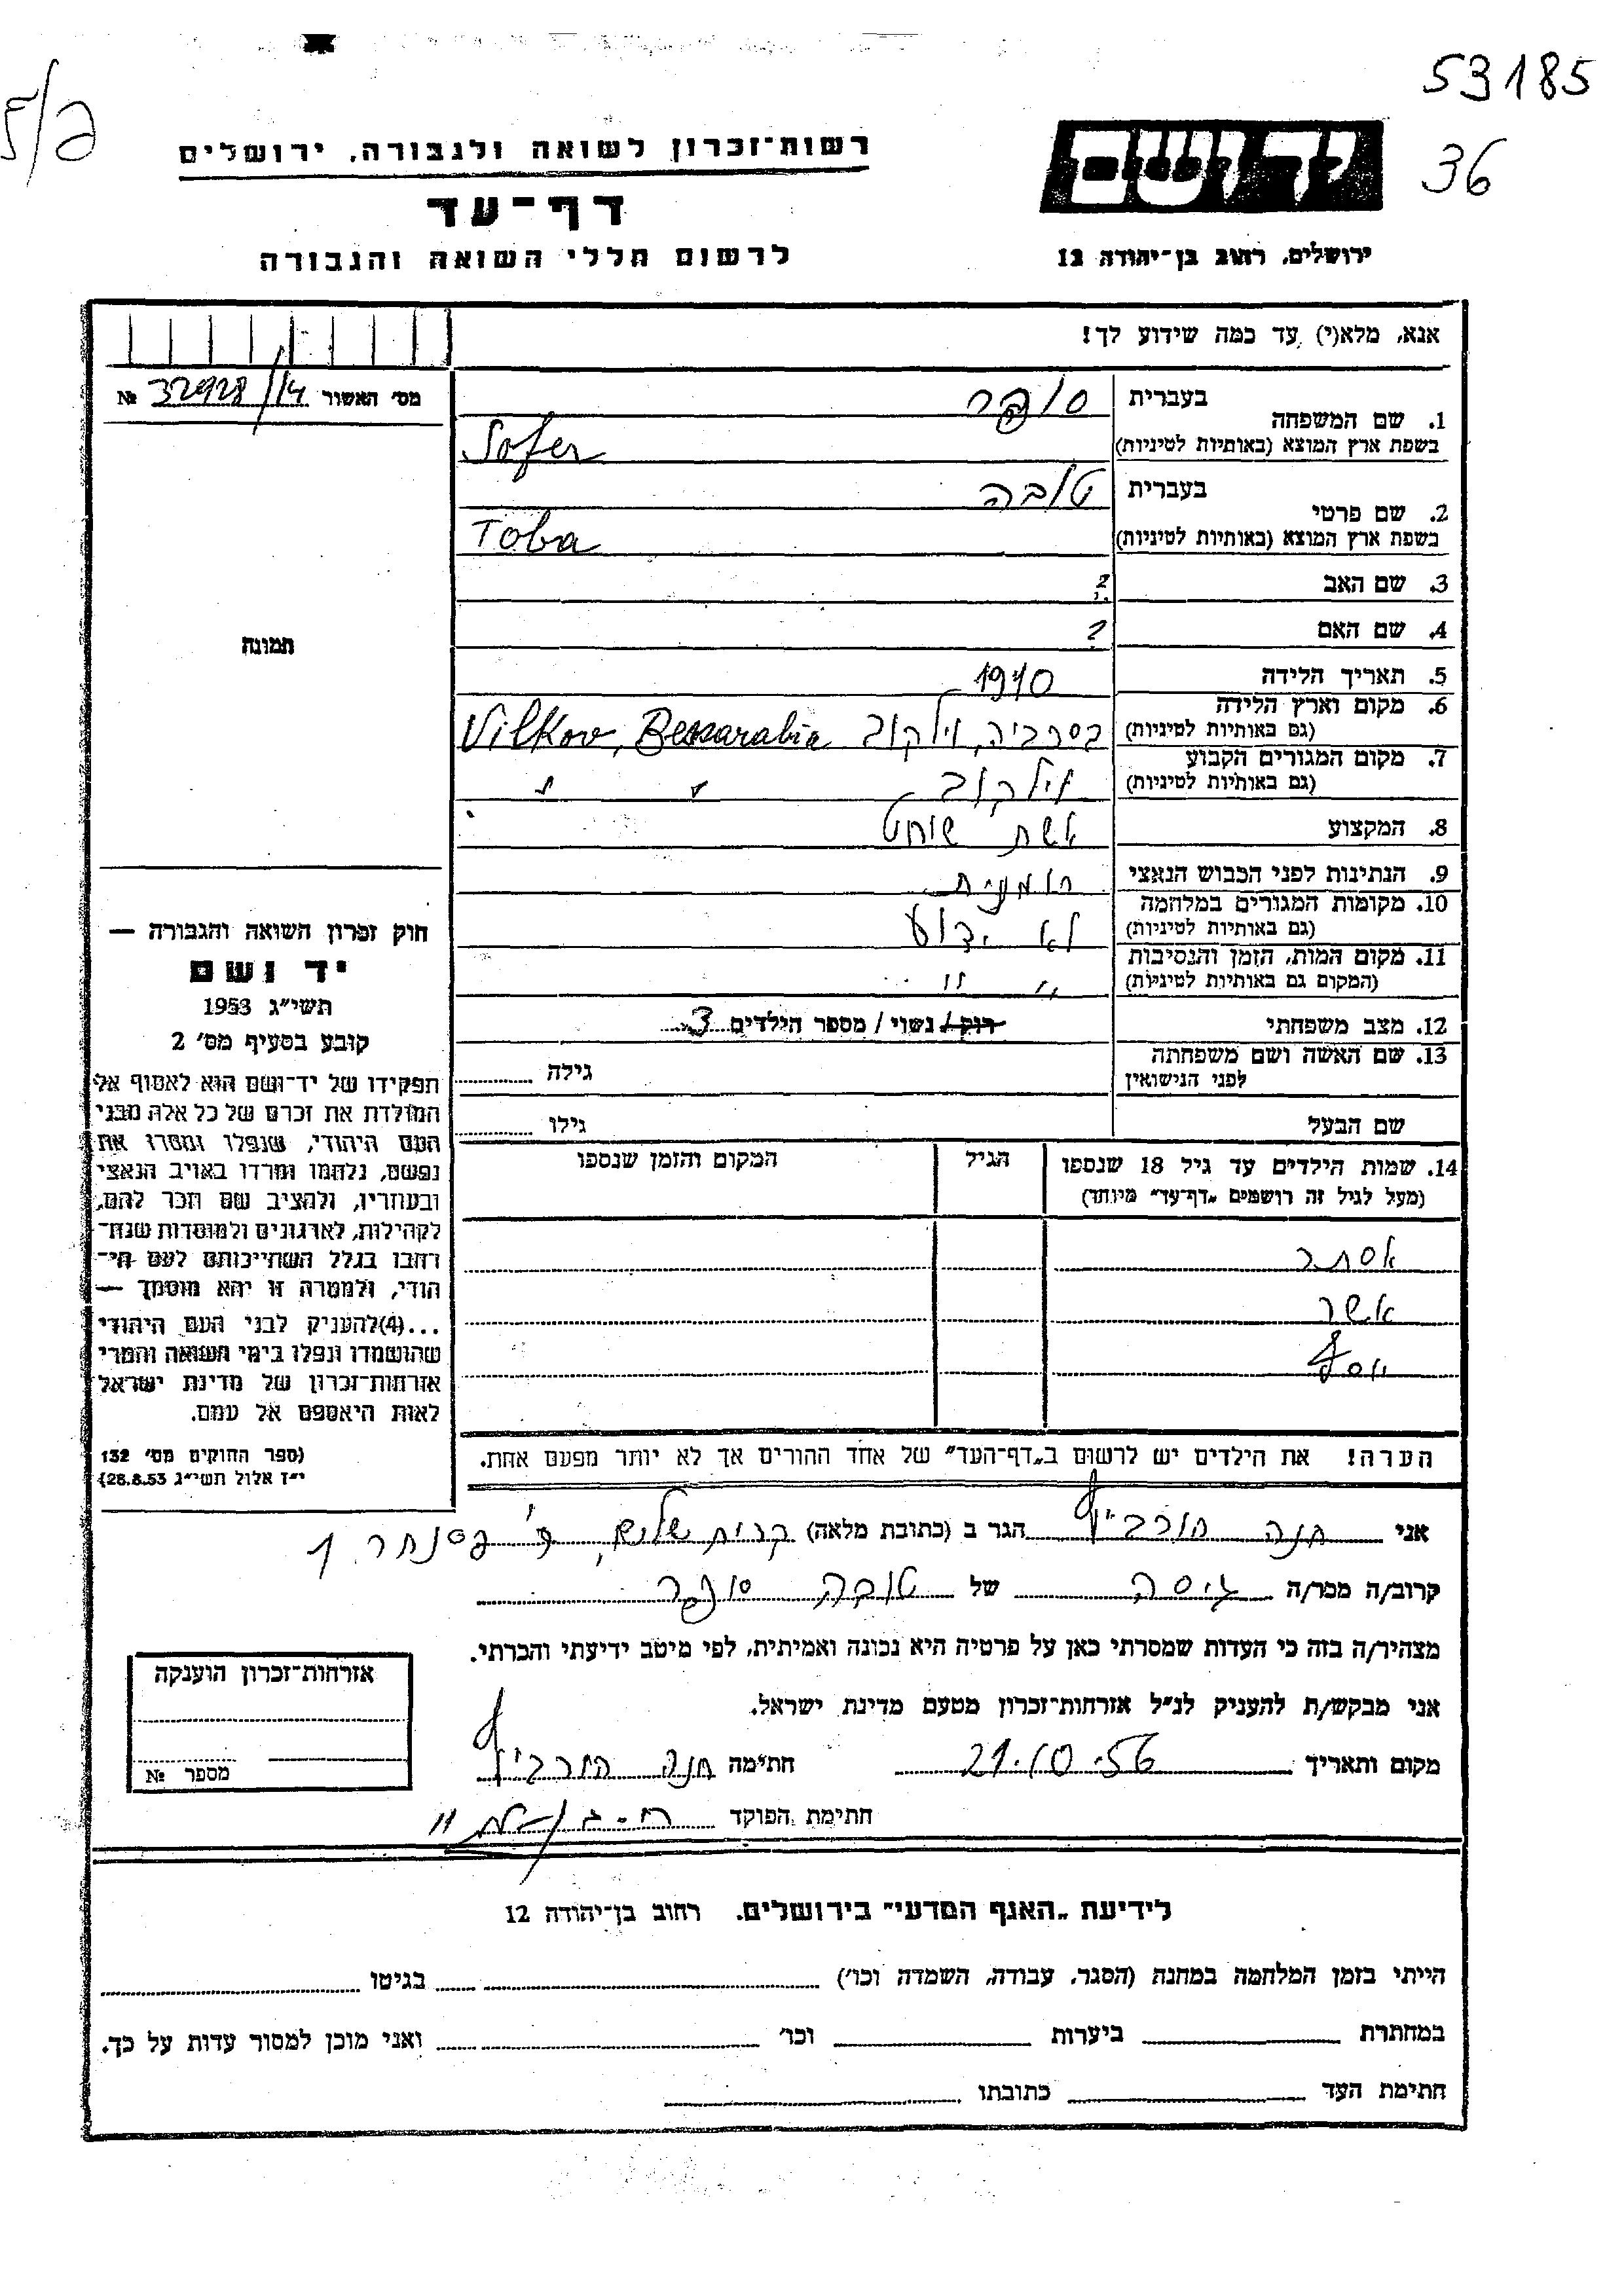 53185
36
יד ושם
ירושלים, רחוב בן־יהודה 12
רשות־זכרון לשואה ולגבורה, ירושלים
דף־עד
לרשום חללי השואה והגבורה
אנא, מלא(י) עד כמה שידוע לך!
מס׳ האשור 32928/14 №
1. שם המשפחה
בעברית סופר
בשפת ארץ המוצא (באותיות לטיניות) Sofer
2. שם פרטי
בעברית טובה
בשפת ארץ המוצא (באותיות לטיניות) Toba
3. שם האב ?
4. שם האם ?
5. תאריך הלידה 1910
6. מקום וארץ הלידה
(גם באותיות לטיניות) בסרביה, וילקוב Vilkov, Bessarabia
7. מקום המגורים הקבוע
(גם באותיות לטיניות) וילקוב
8. המקצוע אשת שוחט
9. הנתינות לפני הכבוש הנאצי רומנית
10. מקומות המגורים במלחמה
(גם באותיות לטיניות) לא ידוע
11. מקום המות, הזמן והנסיבות
(המקום גם באותיות לטיניות) " "
12. מצב משפחתי רוק / נשוי / מספר הילדים 3
13. שם האשה ושם משפחתה
לפני הנישואין גילה
שם הבעל גילו
14. שמות הילדים עד גיל 18 שנספו
(מעל לגיל זה רושמים „דף־עד” מיוחד)
הגיל
המקום והזמן שנספו
אסתר
אשר
יוסף
הערה! את הילדים יש לרשום ב„דף־העד” של אחד ההורים אך לא יותר מפעם אחת.
תמונה
חוק זכרון השואה והגבורה —
יד ושם
תשי״ג 1953
קובע בסעיף מס׳ 2
תפקידו של יד־ושם הוא לאסוף אל
המולדת את זכרם של כל אלה מבני
העם היהודי, שנפלו ומסרו את
נפשם, נלחמו ומרדו באויב הנאצי
ובעוזריו, ולהציב שם וזכר להם,
לקהילות, לארגונים ולמוסדות שנח־
רבו בגלל השתייכותם לעם הי־
הודי, ולמטרה זו יהא מוסמך —
...(4)להעניק לבני העם היהודי
שהושמדו ונפלו בימי השואה והמרי
אזרחות־זכרון של מדינת ישראל
לאות היאספם אל עמם.
(ספר החוקים מס׳ 132
י״ז אלול תשי״ג 28.8.53)
אני חנה חורביץ הגר ב (כתובת מלאה) קרית שלום, 1
קרוב/ה מכר/ה גיסה של טובה סופר
מצהיר/ה בזה כי העדות שמסרתי כאן על פרטיה היא נכונה ואמיתית, לפי מיטב ידיעתי והכרתי.
אני מבקש/ת להעניק לנ״ל אזרחות־זכרון מטעם מדינת ישראל.
מקום ותאריך 21.10.56 חתימה חנה הורביץ
חתימת הפוקד
אזרחות־זכרון הוענקה
מספר №
לידיעת „האגף המדעי” בירושלים. רחוב בן־יהודה 12
הייתי בזמן המלחמה במחנה (הסגר, עבודה, השמדה וכו׳) בגיטו
במחתרת ביערות וכו׳ ואני מוכן למסור עדות על כך.
חתימת העד כתובתו